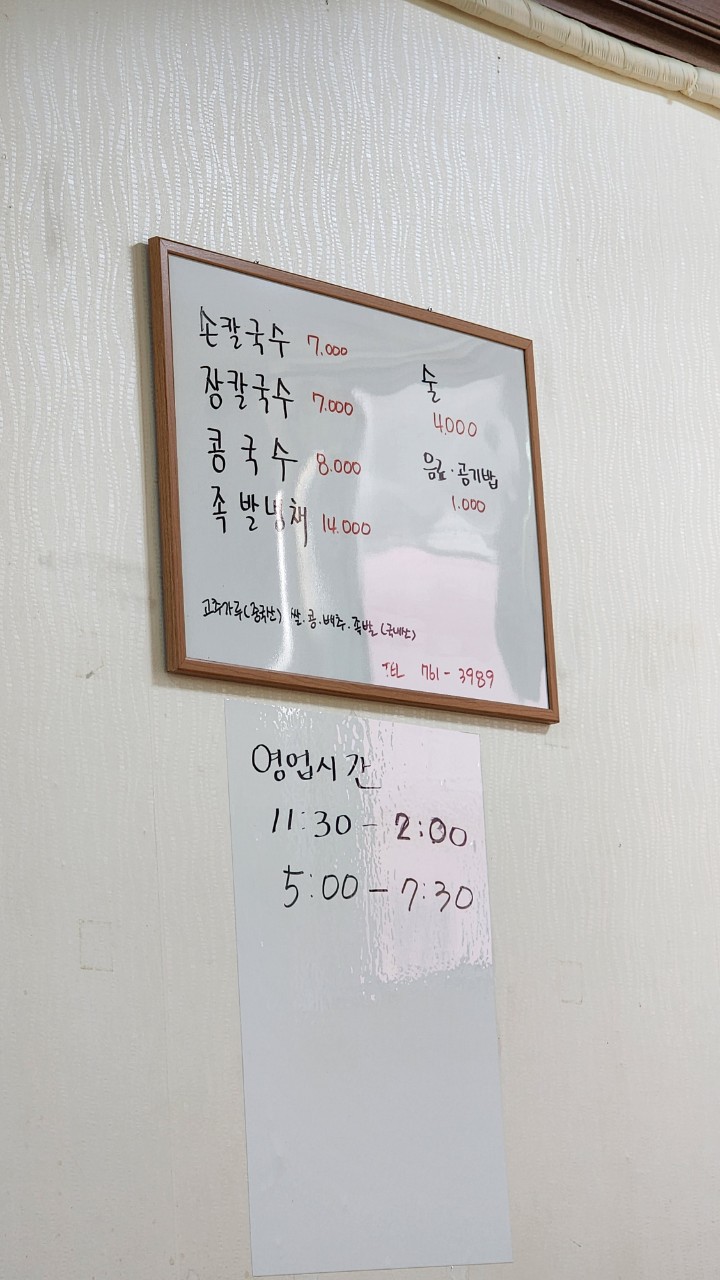 손칼국수 7.000
장칼국수 7.000
콩국수 8.000
족발냉채 14.000
술
4.000
음료·공기밥
1.000
고추가루(중국산) 쌀.콩.배추.족발(국내산)
TEL 761-3989
영업시간
11:30-2:00
5:00-7:30